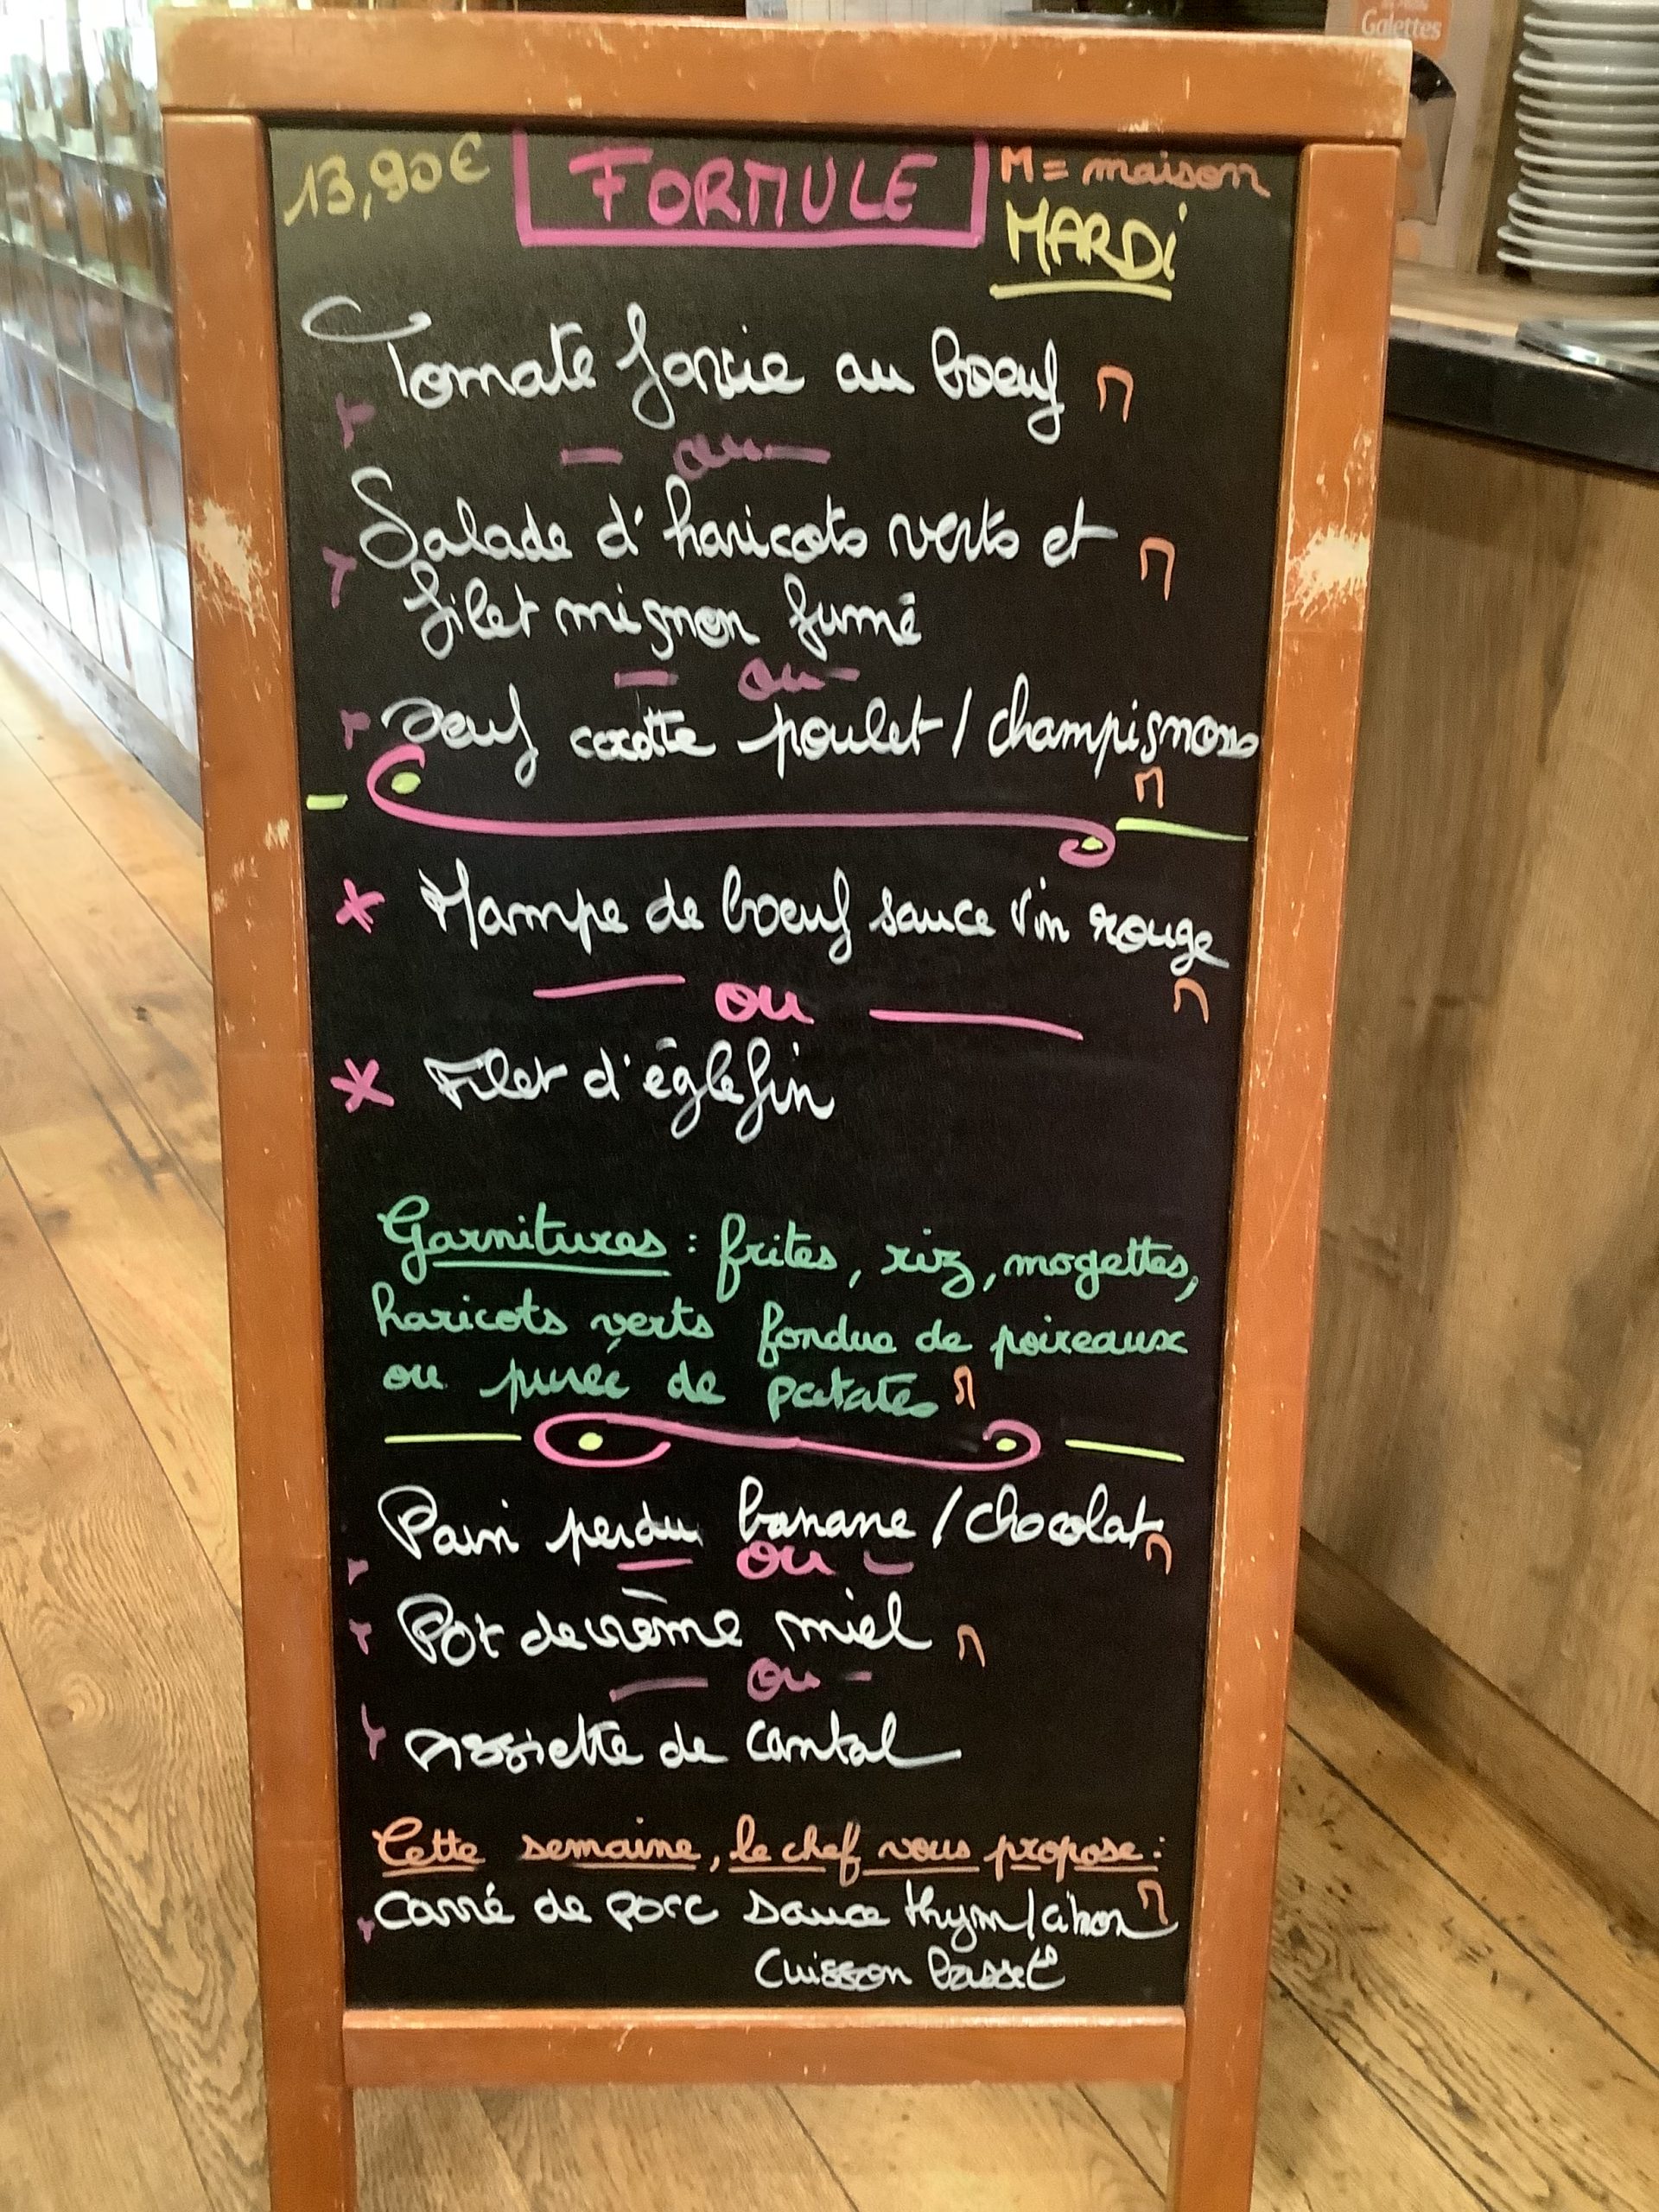 Galettes
13,90€ FORMULE M = maison
MARDi
Tomate farcie au boeuf M
— ou —
Salade d'haricots verts et M
filet mignon fumé
— ou —
Oeuf cocotte poulet / champignons
M
* Hampe de boeuf sauce vin rouge
M
— ou —
* Filet d'églefin
Garnitures : frites, riz, mogettes,
haricots verts fondue de poireaux
ou purée de patates M
Pain perdu banane / chocolat M
— ou —
Pot de crème miel M
— ou —
Assiette de cantal
Cette semaine, le chef vous propose :
Carré de porc sauce thym / citron M
Cuisson basse t°